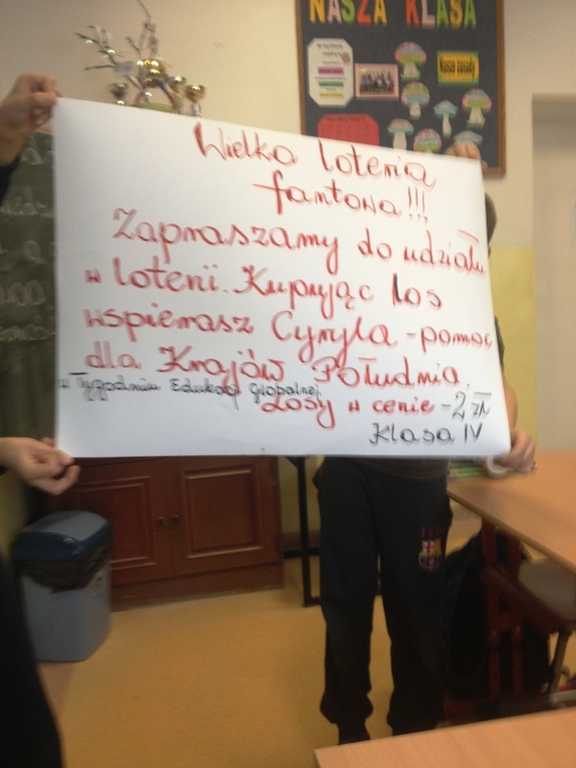 NASZA KLASA
Nasze zasady
Wielka loteria
fantowa!!!
Zapraszamy do udziału
w loterii. Kupując los
wspierasz Cyryla - pomoc
dla Krajów Południa
w Tygodniu Edukacji Globalnej.
Losy w cenie - 2 zł
Klasa IV